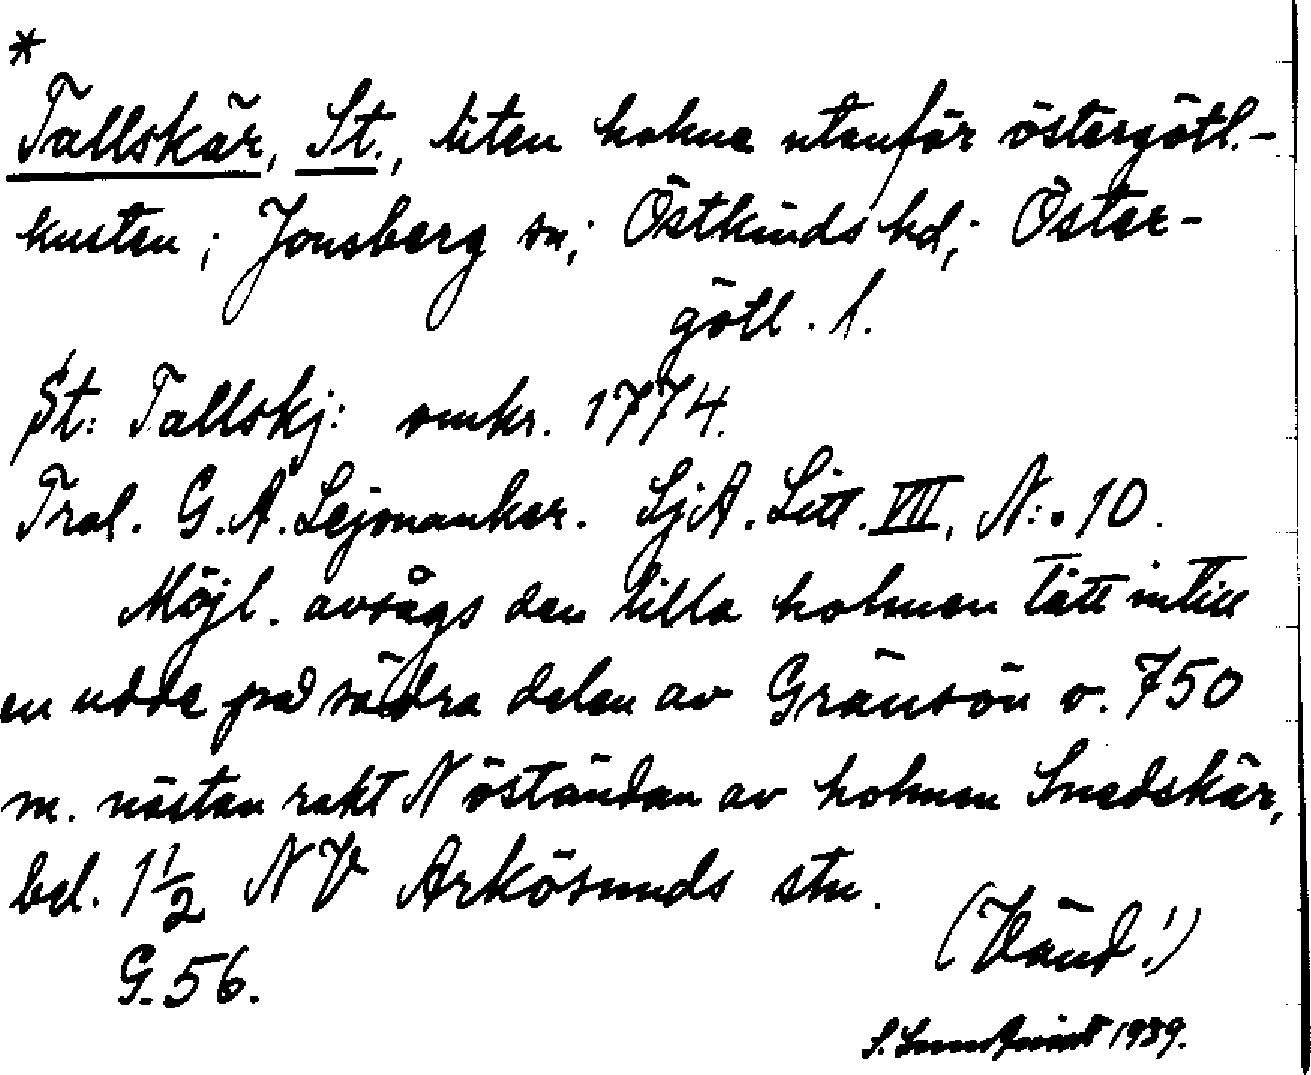 *
Tallskär, St., liten holme utanför östergötl.-
kusten; Jonsberg sn; Östkinds hd; Öster-
götl. l.
St: Tallskj: omkr. 1774.
Tral. G. A. Lejonanker. SjA. Litt. VIII, N:o 10.
Möjl. avsågs den lilla holmen tätt intill
en udde på södra delen av Gränsön o. 750
m. nästan rakt N öständan av holmen Snedskär,
bel. 1 1/2 NV Arkösunds stn.
(Vänd!)
G. 56.
S. 1939.